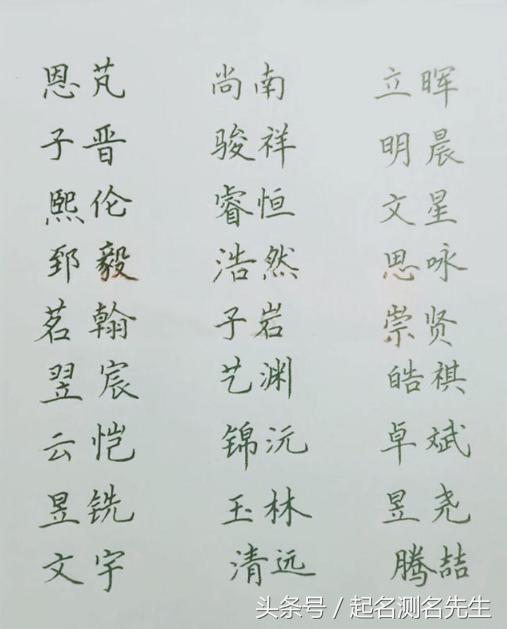 恩芃 尚南 立晖
子晋 骏祥 明晨
熙伦 睿恒 文星
郅毅 浩然 思咏
茗翰 子岩 崇贤
翌宸 艺渊 皓祺
云恺 锦沅 卓斌
昱铣 玉林 昱尧
文宇 清远 腾喆
头条号 / 起名测名先生